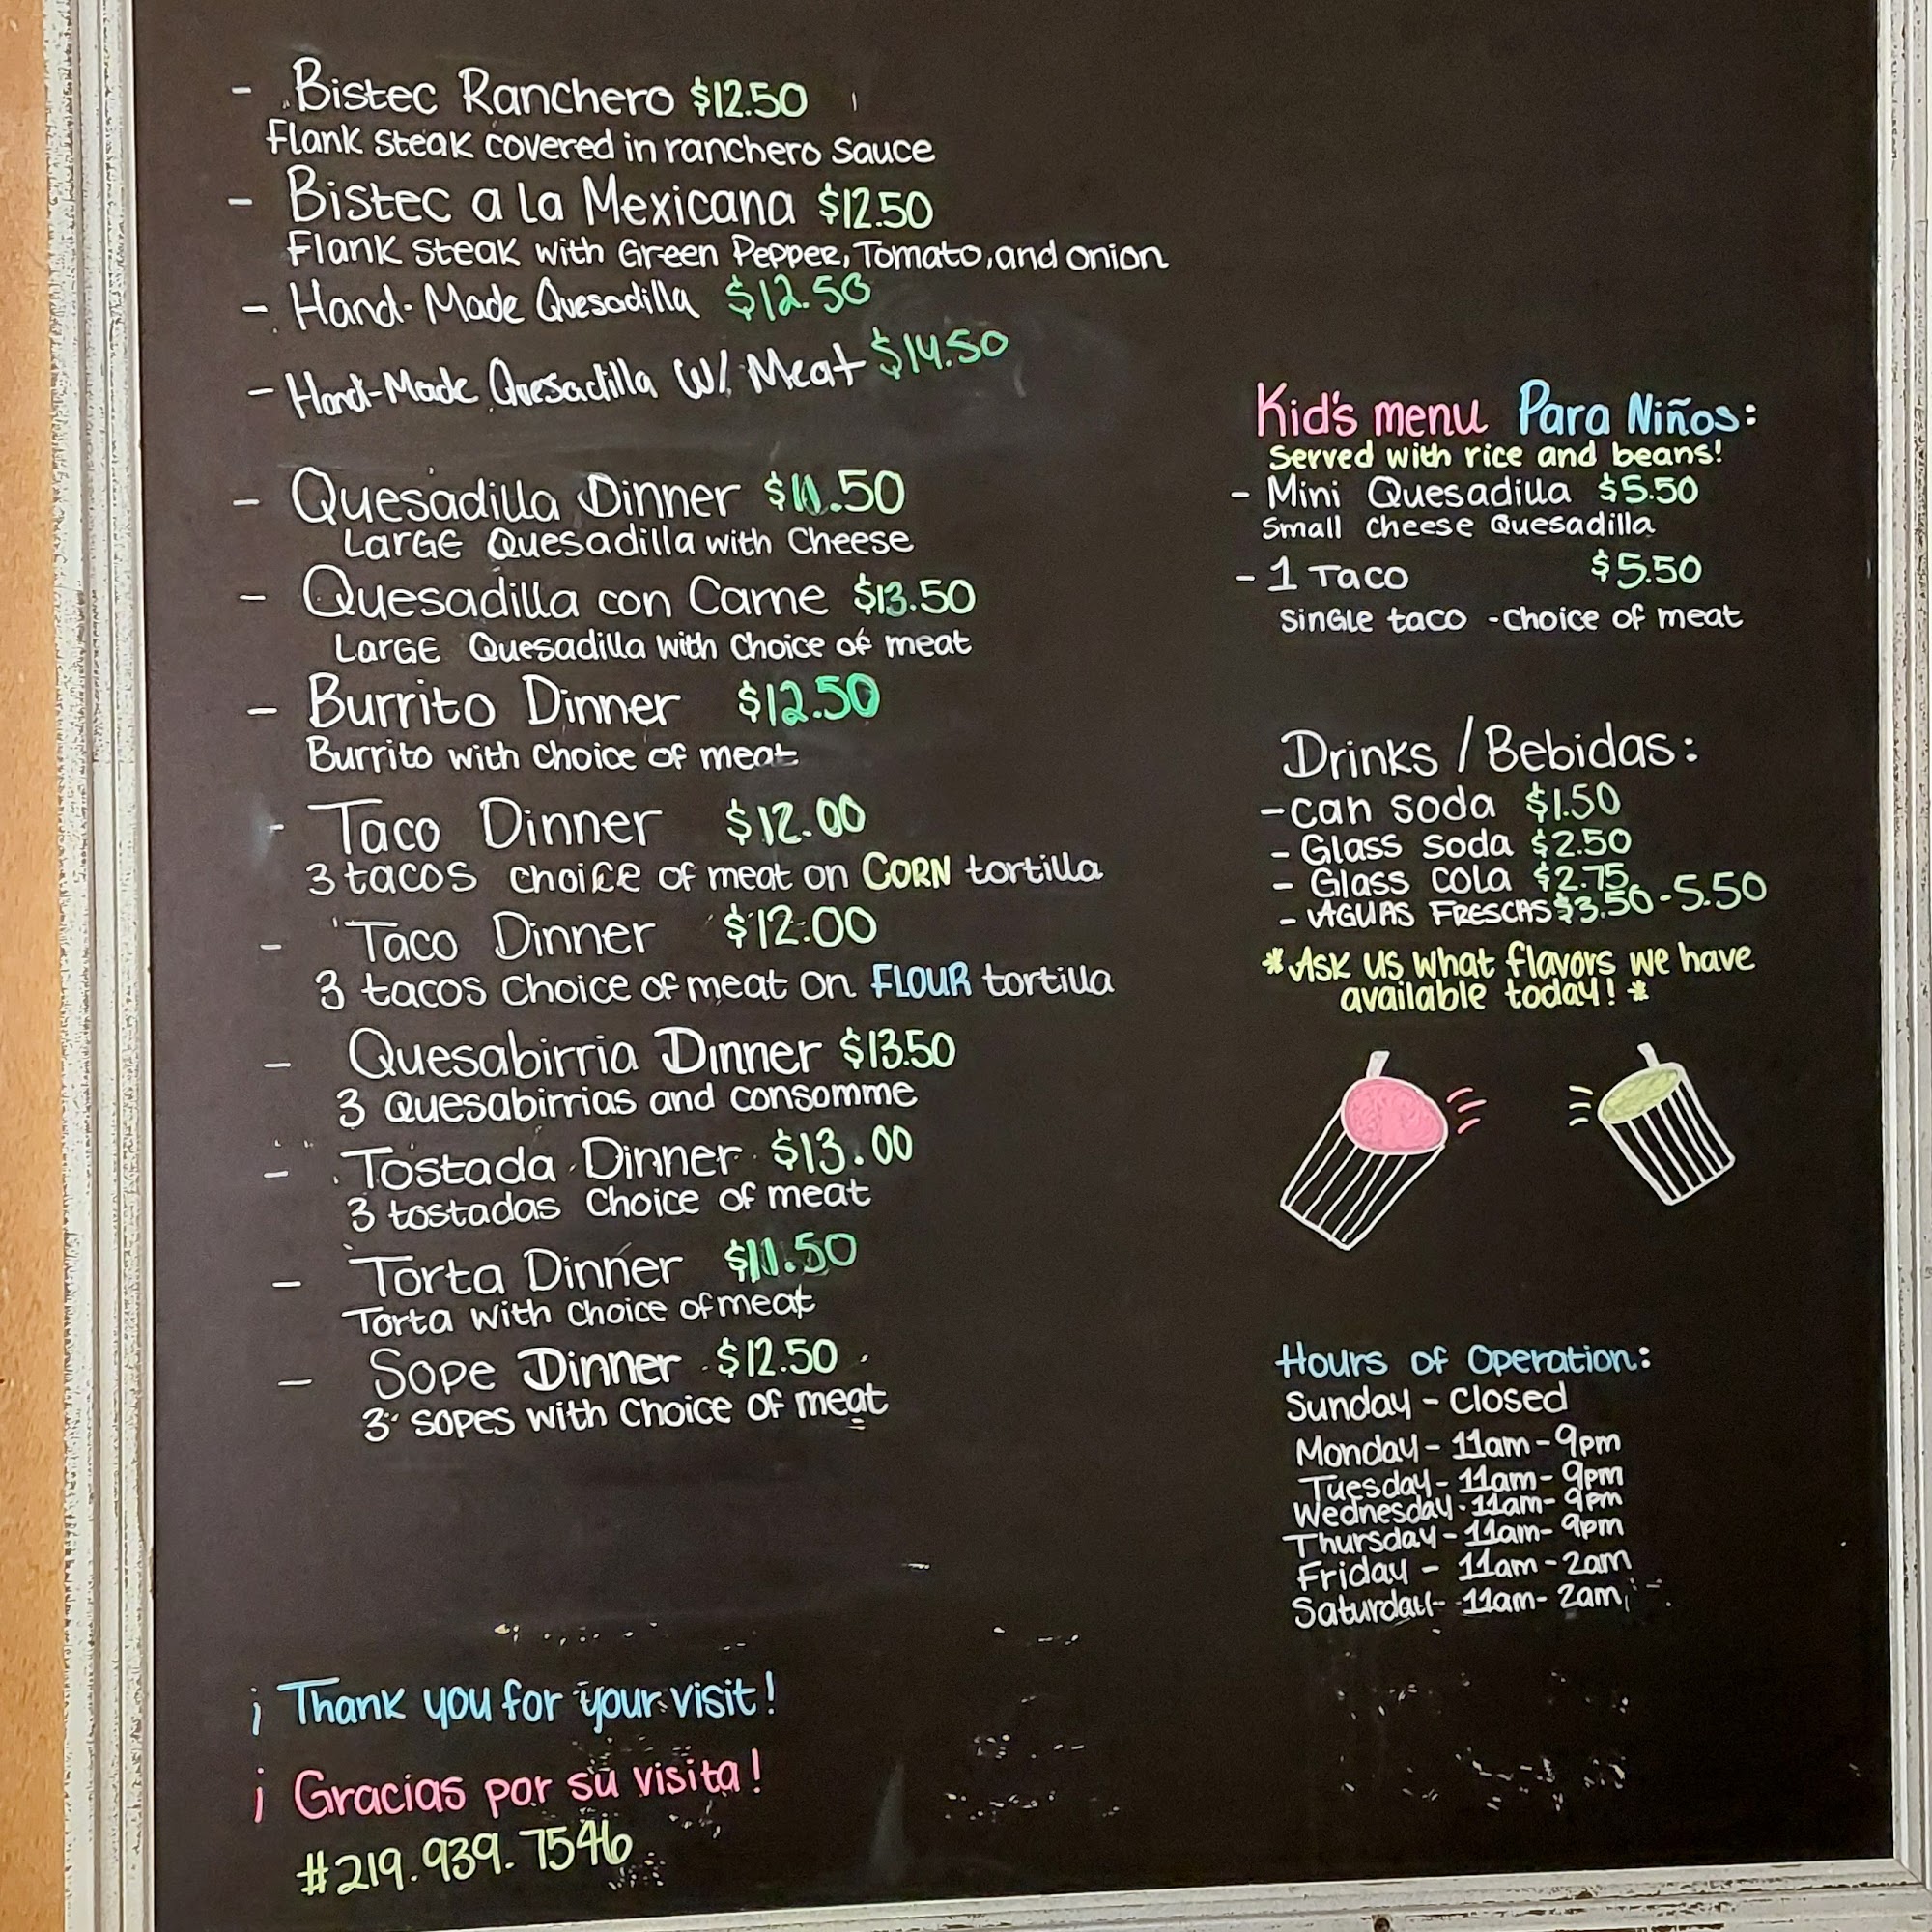 - Bistec Ranchero $12.50
Flank steak covered in ranchero sauce
- Bistec a la Mexicana $12.50
Flank steak with Green Pepper, Tomato, and onion
- Hand-Made Quesadilla $12.50
- Hand-Made Quesadilla W/ Meat $14.50
- Quesadilla Dinner $11.50
Large Quesadilla with Cheese
- Quesadilla con Carne $13.50
Large Quesadilla with Choice of meat
- Burrito Dinner $12.50
Burrito with Choice of meat
- Taco Dinner $12.00
3 tacos choice of meat on CORN tortilla
- Taco Dinner $12.00
3 tacos choice of meat on FLOUR tortilla
- Quesabirria Dinner $13.50
3 Quesabirrias and consomme
- Tostada Dinner $13.00
3 tostadas Choice of meat
- Torta Dinner $11.50
Torta with Choice of meat
- Sope Dinner $12.50
3 sopes with Choice of meat
¡Thank you for your visit!
¡Gracias por su visita!
#219.939.7546
Kid's menu Para Niños:
Served with rice and beans!
- Mini Quesadilla $5.50
Small cheese Quesadilla
- 1 Taco $5.50
Single taco - choice of meat
Drinks / Bebidas:
- can soda $1.50
- Glass soda $2.50
- Glass cola $2.75
- AGUAS FRESCAS $3.50-5.50
*Ask us what flavors we have
available today!*
Hours of Operation:
Sunday - Closed
Monday - 11am - 9pm
Tuesday - 11am - 9pm
Wednesday - 11am - 9pm
Thursday - 11am - 9pm
Friday - 11am - 2am
Saturday - 11am - 2am